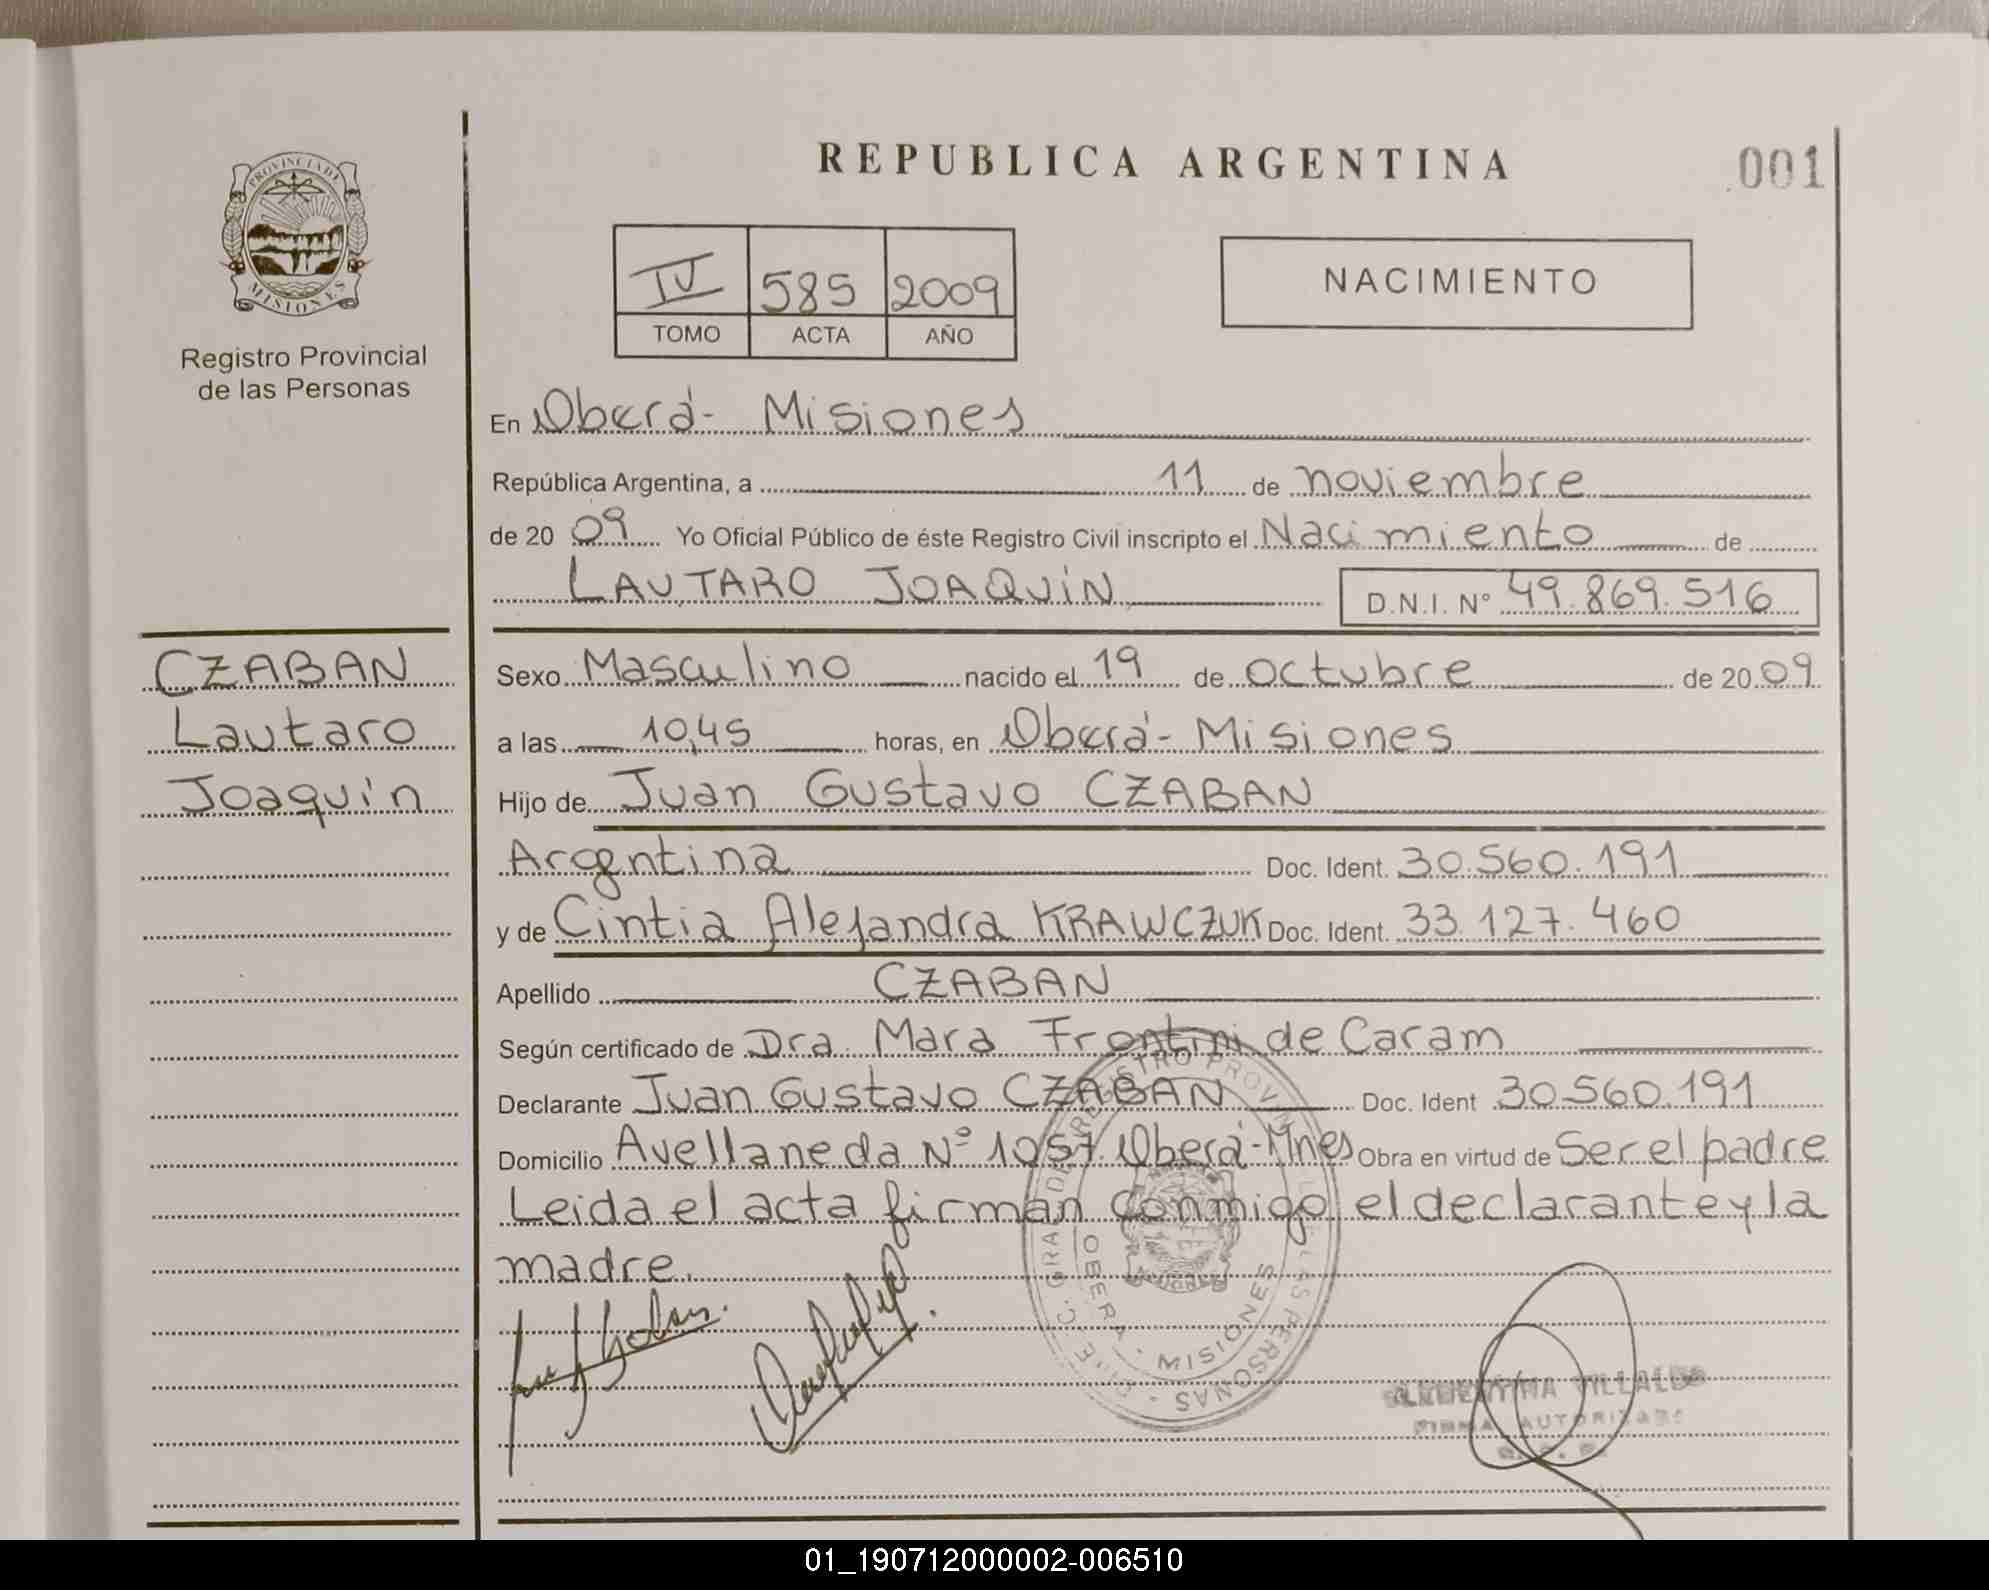 REPUBLICA ARGENTINA
001
PROVINCIA DE
MISIONES
Registro Provincial
de las Personas
IV 585 2009
TOMO ACTA AÑO
NACIMIENTO
En Oberá - Misiones
República Argentina, a 11 de noviembre
de 20 09 Yo Oficial Público de éste Registro Civil inscripto el Nacimiento de
LAUTARO JOAQUÍN D.N.I. N° 49.869.516
CZABAN
Lautaro
Joaquín
Sexo Masculino nacido el 19 de octubre de 20 09
a las 10,45 horas, en Oberá - Misiones
Hijo de Juan Gustavo CZABAN
Argentina Doc. Ident. 30.560.191
y de Cintia Alejandra KRAWCZUK Doc. Ident. 33.127.460
Apellido CZABAN
Según certificado de Dra. Mara Frontini de Caram
Declarante Juan Gustavo CZABAN Doc. Ident 30.560.191
Domicilio Avellaneda N° 1057. Oberá - Mnes Obra en virtud de Ser el padre
Leida el acta firman conmigo el declarante y la
madre.
REGISTRO PROVINCIAL DE LAS PERSONAS
OBERA - MISIONES
VILLALBA
FIRMA AUTORIZADA
01_190712000002-006510